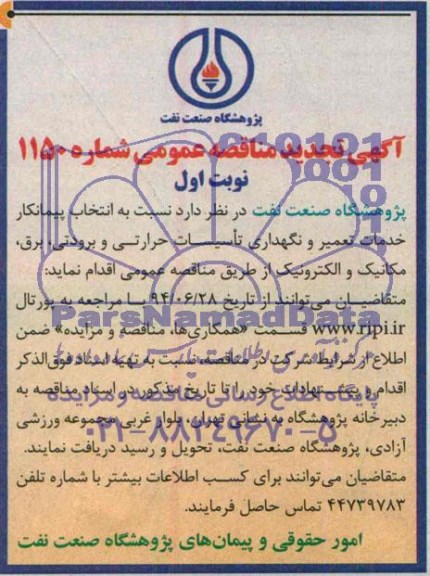 پژوهشگاه صنعت نفت
آگهی تجدید مناقصه عمومی شماره ۱۱۵۰
نوبت اول
پژوهشگاه صنعت نفت در نظر دارد نسبت به انتخاب پیمانکار
خدمات تعمیر و نگهداری تأسیسات حرارتی و برودتی، برق،
مکانیک و الکترونیک از طریق مناقصه عمومی اقدام نماید:
متقاضیان می‌توانند از تاریخ ۹۴/۰۶/۲۸ با مراجعه به پورتال
www.ripi.ir قسمت «همکاری‌ها، مناقصه و مزایده» ضمن
اطلاع از شرایط شرکت در مناقصه، نسبت به تهیه اسناد فوق‌الذکر
اقدام و پیشنهادات خود را تا تاریخ مذکور در اسناد مناقصه به
دبیرخانه پژوهشگاه به نشانی تهران، بلوار غربی مجموعه ورزشی
آزادی، پژوهشگاه صنعت نفت، تحویل و رسید دریافت نمایند.
متقاضیان می‌توانند برای کسب اطلاعات بیشتر با شماره تلفن
۴۴۷۳۹۷۸۳ تماس حاصل فرمایند.
امور حقوقی و پیمان‌های پژوهشگاه صنعت نفت
ParsNamadData
پایگاه اطلاع رسانی مناقصه و مزایده
۰۲۱-۸۸۳۴۹۶۷۰-۵